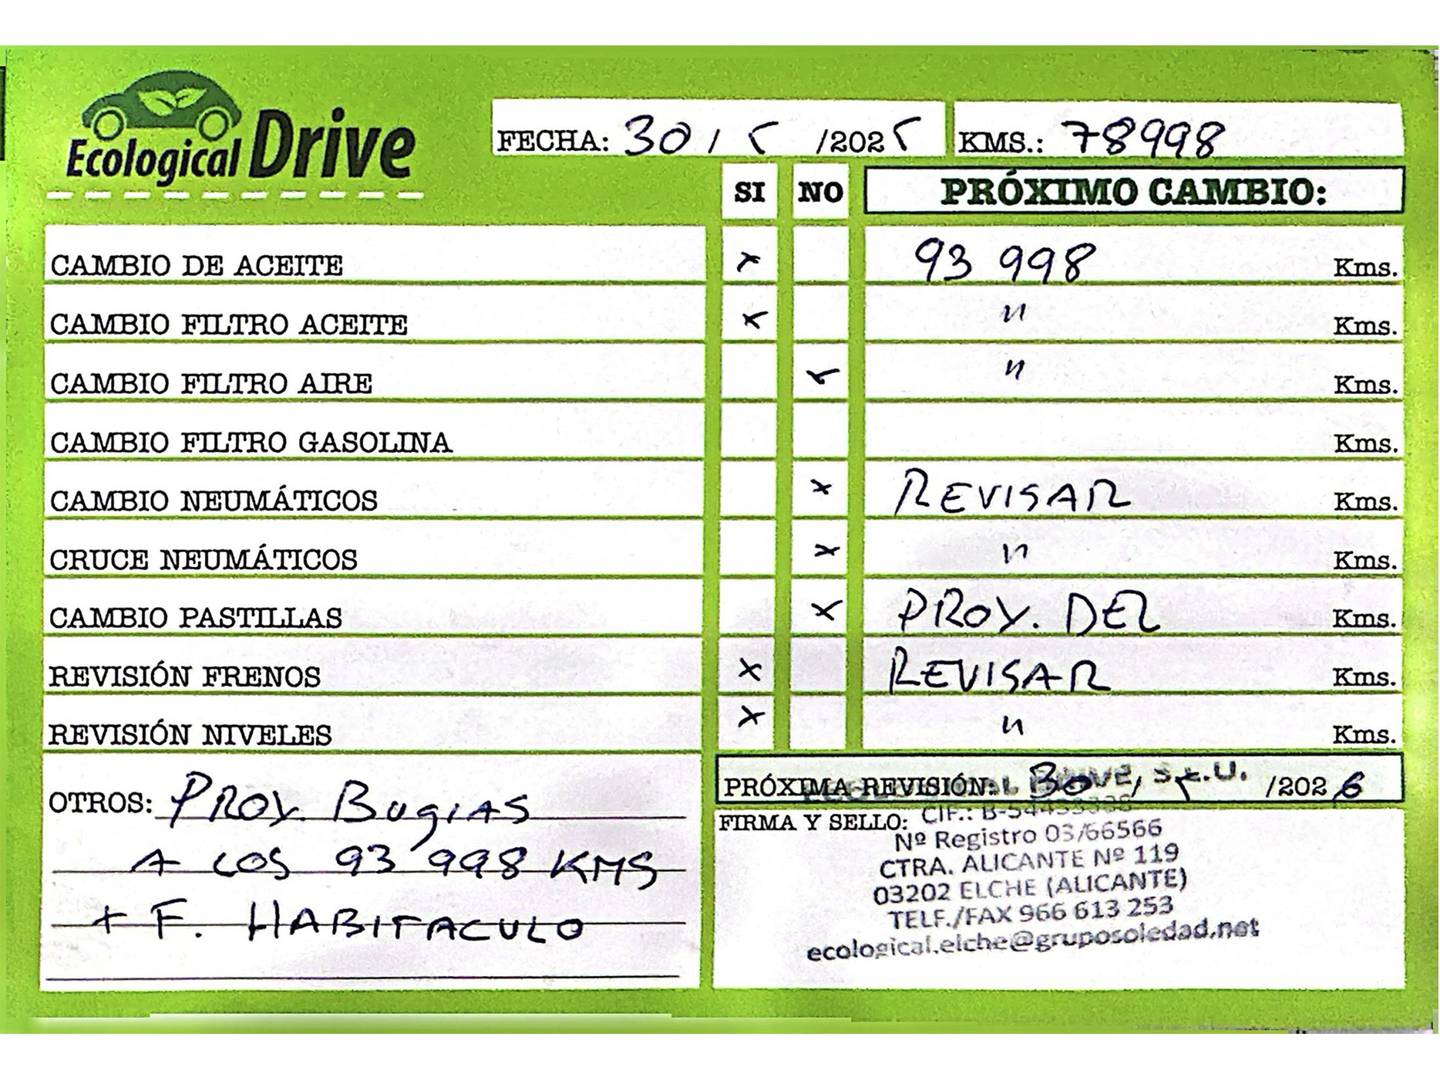 Ecological Drive
FECHA: 30 / 5 /2025 KMS.: 78998
SI NO PRÓXIMO CAMBIO:
CAMBIO DE ACEITE x 93 998 Kms.
CAMBIO FILTRO ACEITE x " Kms.
CAMBIO FILTRO AIRE x " Kms.
CAMBIO FILTRO GASOLINA Kms.
CAMBIO NEUMÁTICOS x REVISAR Kms.
CRUCE NEUMÁTICOS x " Kms.
CAMBIO PASTILLAS x PROX. DEL Kms.
REVISIÓN FRENOS x REVISAR Kms.
REVISIÓN NIVELES x " Kms.
OTROS: PROX. BUGIAS
A LOS 93 998 KMS
+ F. HABITACULO
PRÓXIMA REVISIÓN: 30 / 5 /2026
S.L.U.
FIRMA Y SELLO: CIF.: B-54433338
Nº Registro 03/66566
CTRA. ALICANTE Nº 119
03202 ELCHE (ALICANTE)
TELF./FAX 966 613 253
ecological.elche@gruposoledad.net